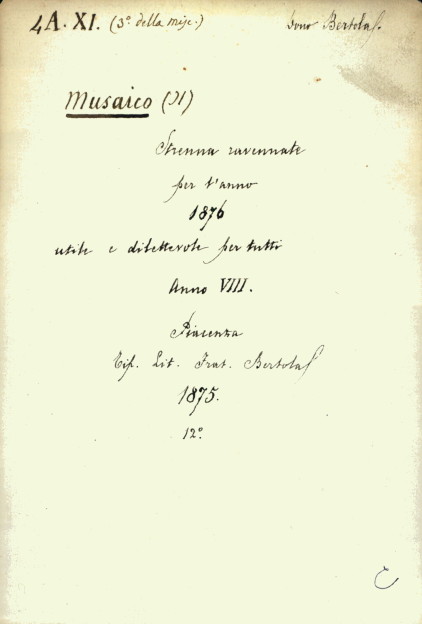 4A. XI. (3º della misc.) dono Bertola
Musaico (Il)
Strenna ravennate
per l'anno
1876
utile e dilettevole per tutti
Anno VIII.
Piacenza
Tip. Lit. Frat. Bertola
1875.
12º.
C